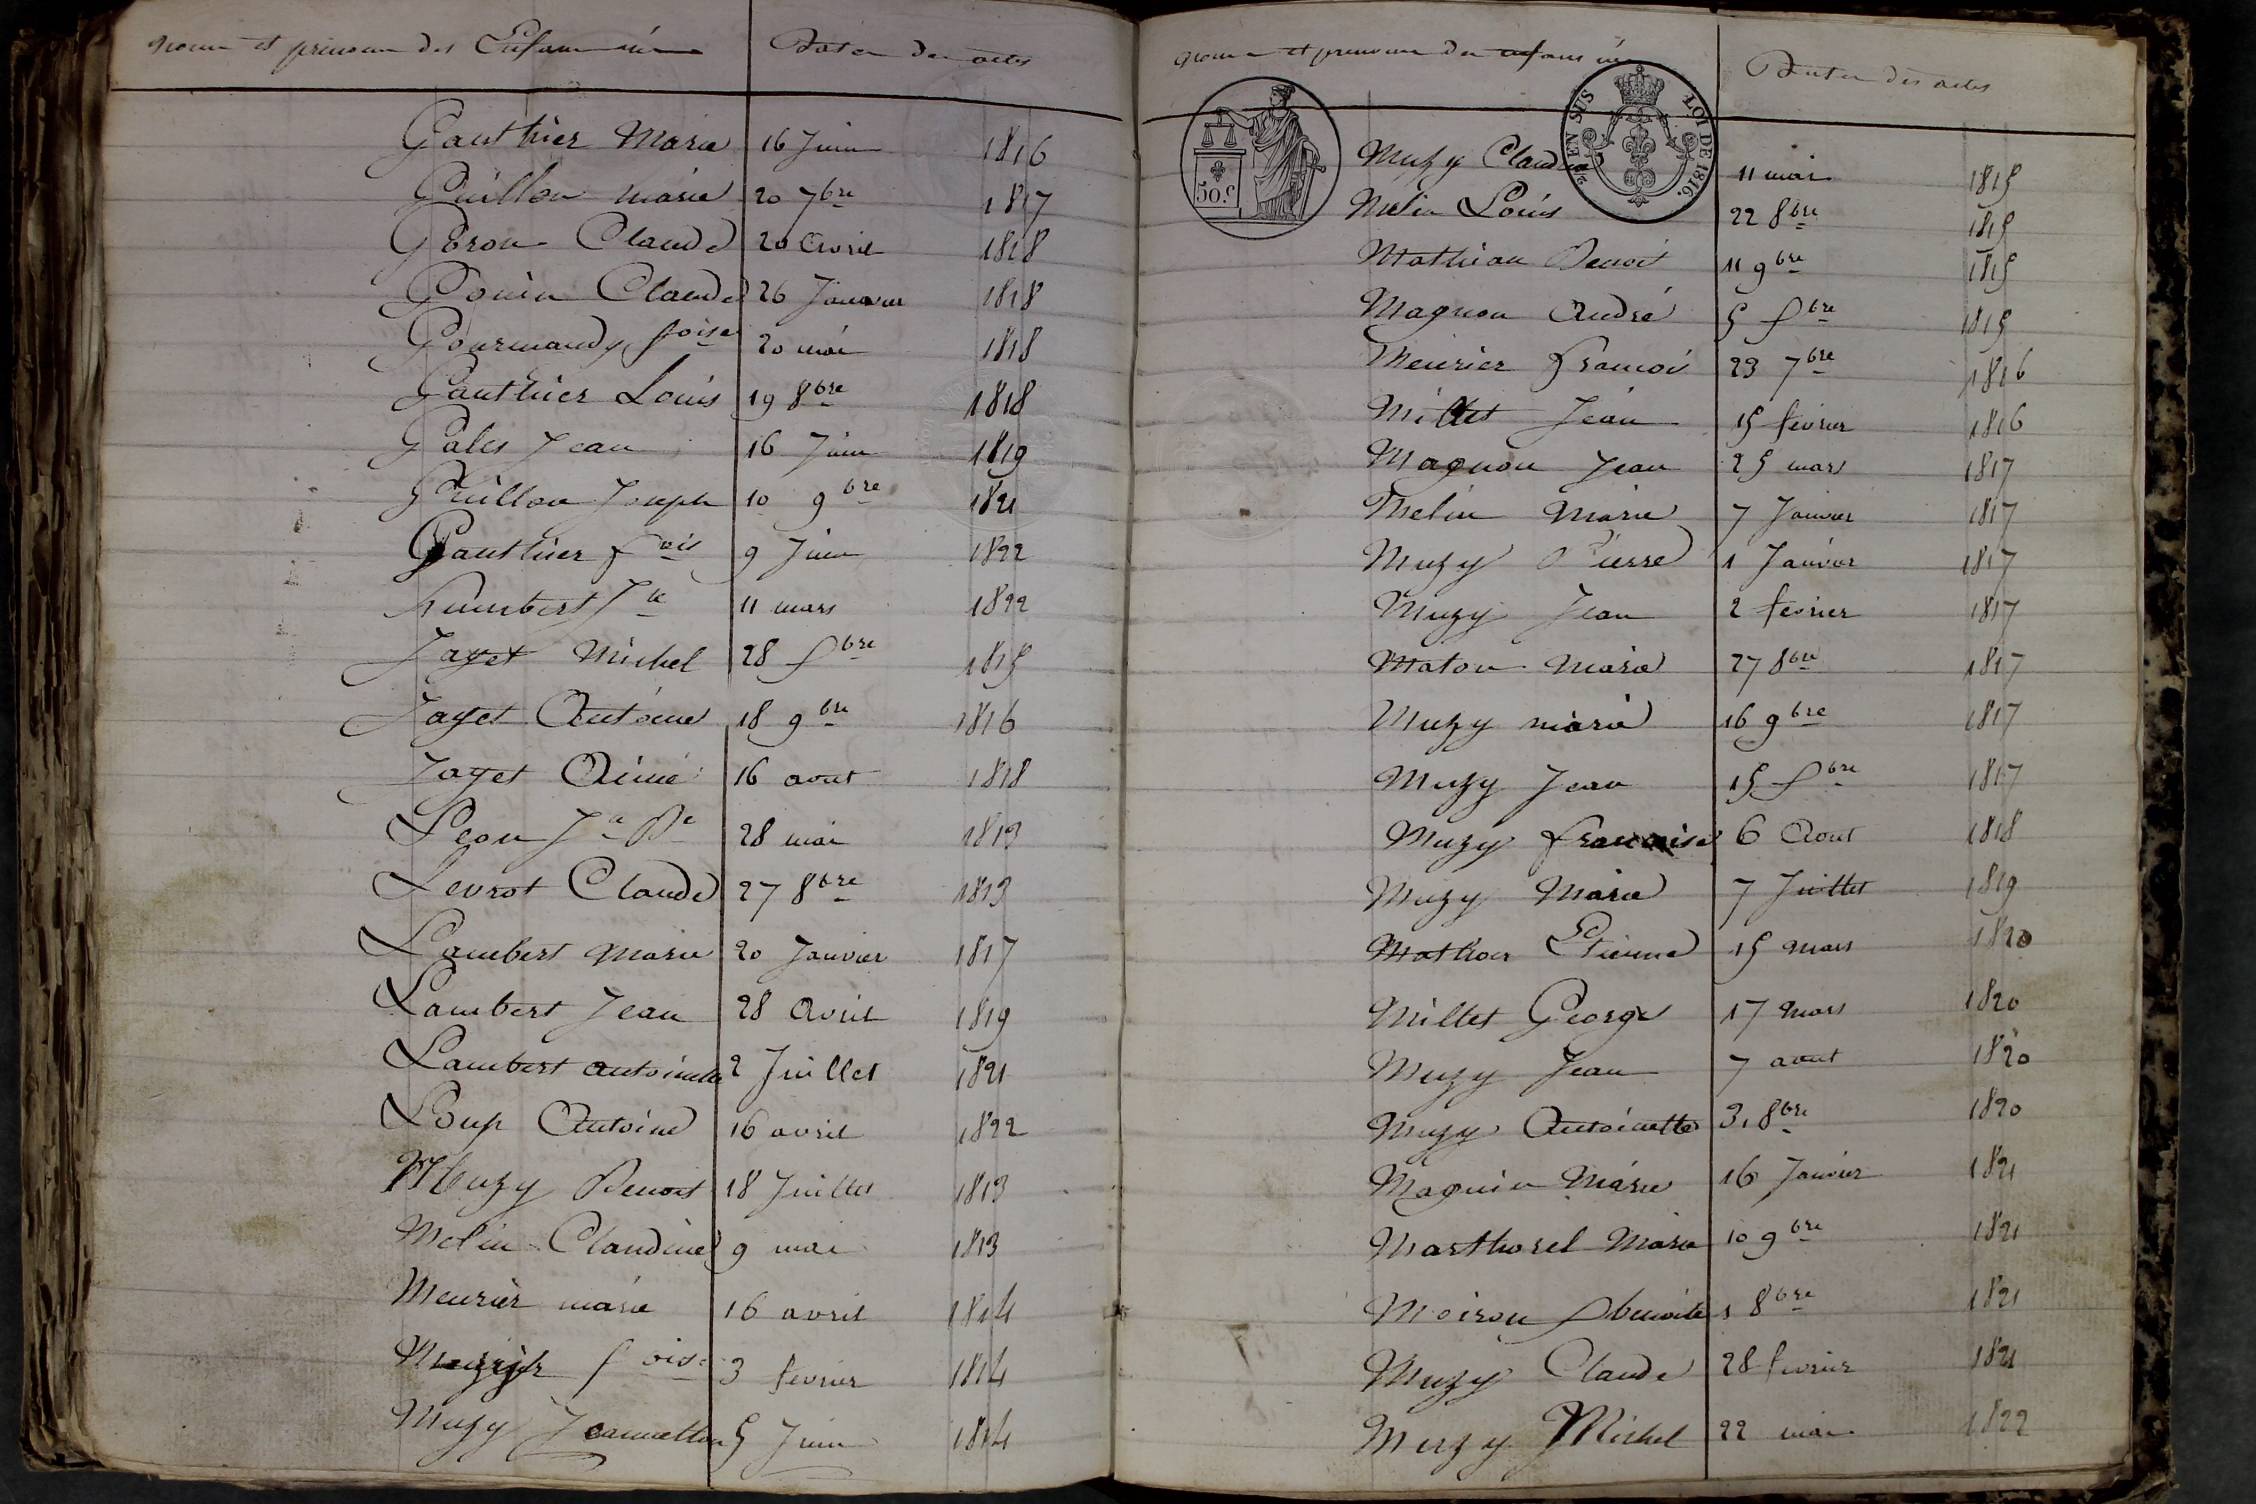 noms et prenoms des Enfans nés Dates des actes
Gauthier Marie 16 Juin 1816
Guillon marie 20 7bre 1817
Giron Claude 20 Avril 1818
Gouin Claude 26 Janvier 1818
Gourmandy foise 20 mai 1818
Gauthier Louis 19 8bre 1818
Gales Jean 16 Juin 1819
Guillon Joseph 10 9bre 1821
Gauthier fois 9 Juin 1822
humbert 11 mars 1822
Jayet Michel 28 Xbre 1815
Jayet Antoine 18 9bre 1816
Jayet Aimé 16 aout 1818
Leon Jn Bte 28 mai 1813
Levrot Claude 27 8bre 1813
Lambert Marie 20 Janvier 1817
Lambert Jean 28 Avril 1819
Lambert antoinette 2 Juillet 1821
Loup Antoine 16 avril 1822
Muzy Benoit 18 Juillet 1813
Melin Claudine 9 mai 1813
Meurier marie 16 avril 1814
foise 3 fevrier 1814
Muzy Jeannette 5 Juin 1814
noms et prenoms des enfans nés Dates des actes
50.c
EN SUS LOI DE 1816.
Muzy Claude 11 mai 1815
Melin Louis 22 8bre 1815
Mathieu Benoit 11 9bre 1815
Magnon André 5 Xbre 1815
Meurier francois 23 7bre 1816
Millet Jean 15 fevrier 1816
Magnon Jean 25 mars 1817
Melin Marie 7 Janvier 1817
Muzy Pierre 1 Janvier 1817
Muzy Jean 2 fevrier 1817
Maton Marie 27 8bre 1817
Muzy marie 16 9bre 1817
Muzy Jean 15 Xbre 1817
Muzy francoise 6 Aout 1818
Muzy Marie 7 Juillet 1819
Etienne 15 mars 1820
Millet George 17 mars 1820
Muzy Jean 7 aout 1820
Muzy Antoinette 31 8bre 1820
Magnin Marie 16 Janvier 1821
Marthorel Marie 10 9bre 1821
Moiron benoite 1 8bre 1821
Muzy Claude 28 fevrier 1821
Muzy Michel 22 mai 1822